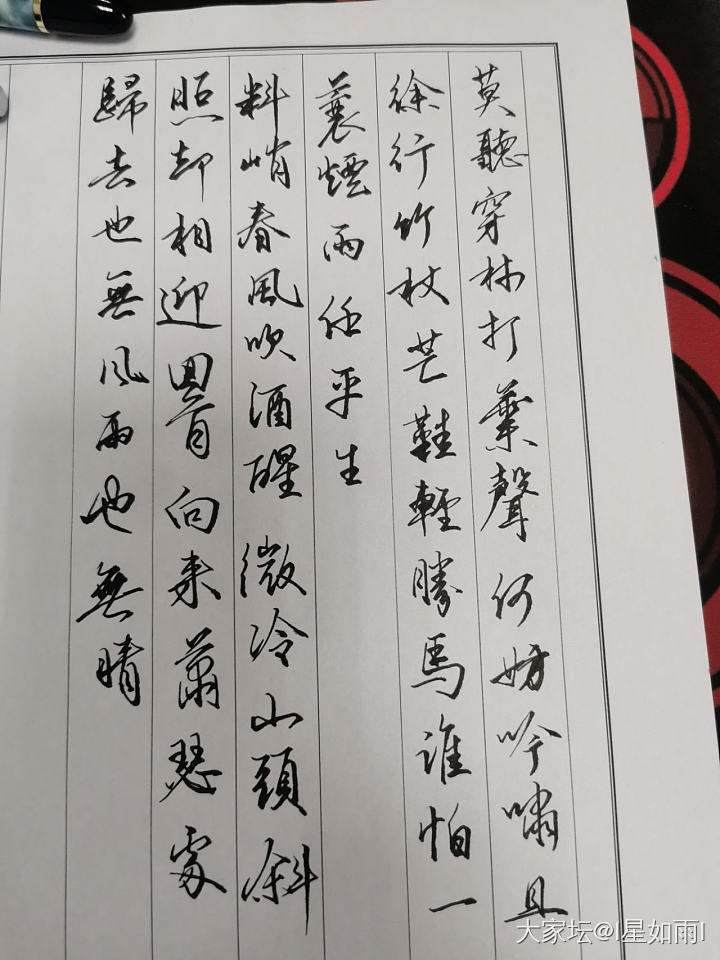 莫聽穿林打葉聲何妨吟嘯且
徐行竹杖芒鞋輕勝馬誰怕一
蓑煙雨任平生
料峭春風吹酒醒微冷山頭斜
照却相迎回首向来蕭瑟處
歸去也無風雨也無晴
大家坛@l星如雨l